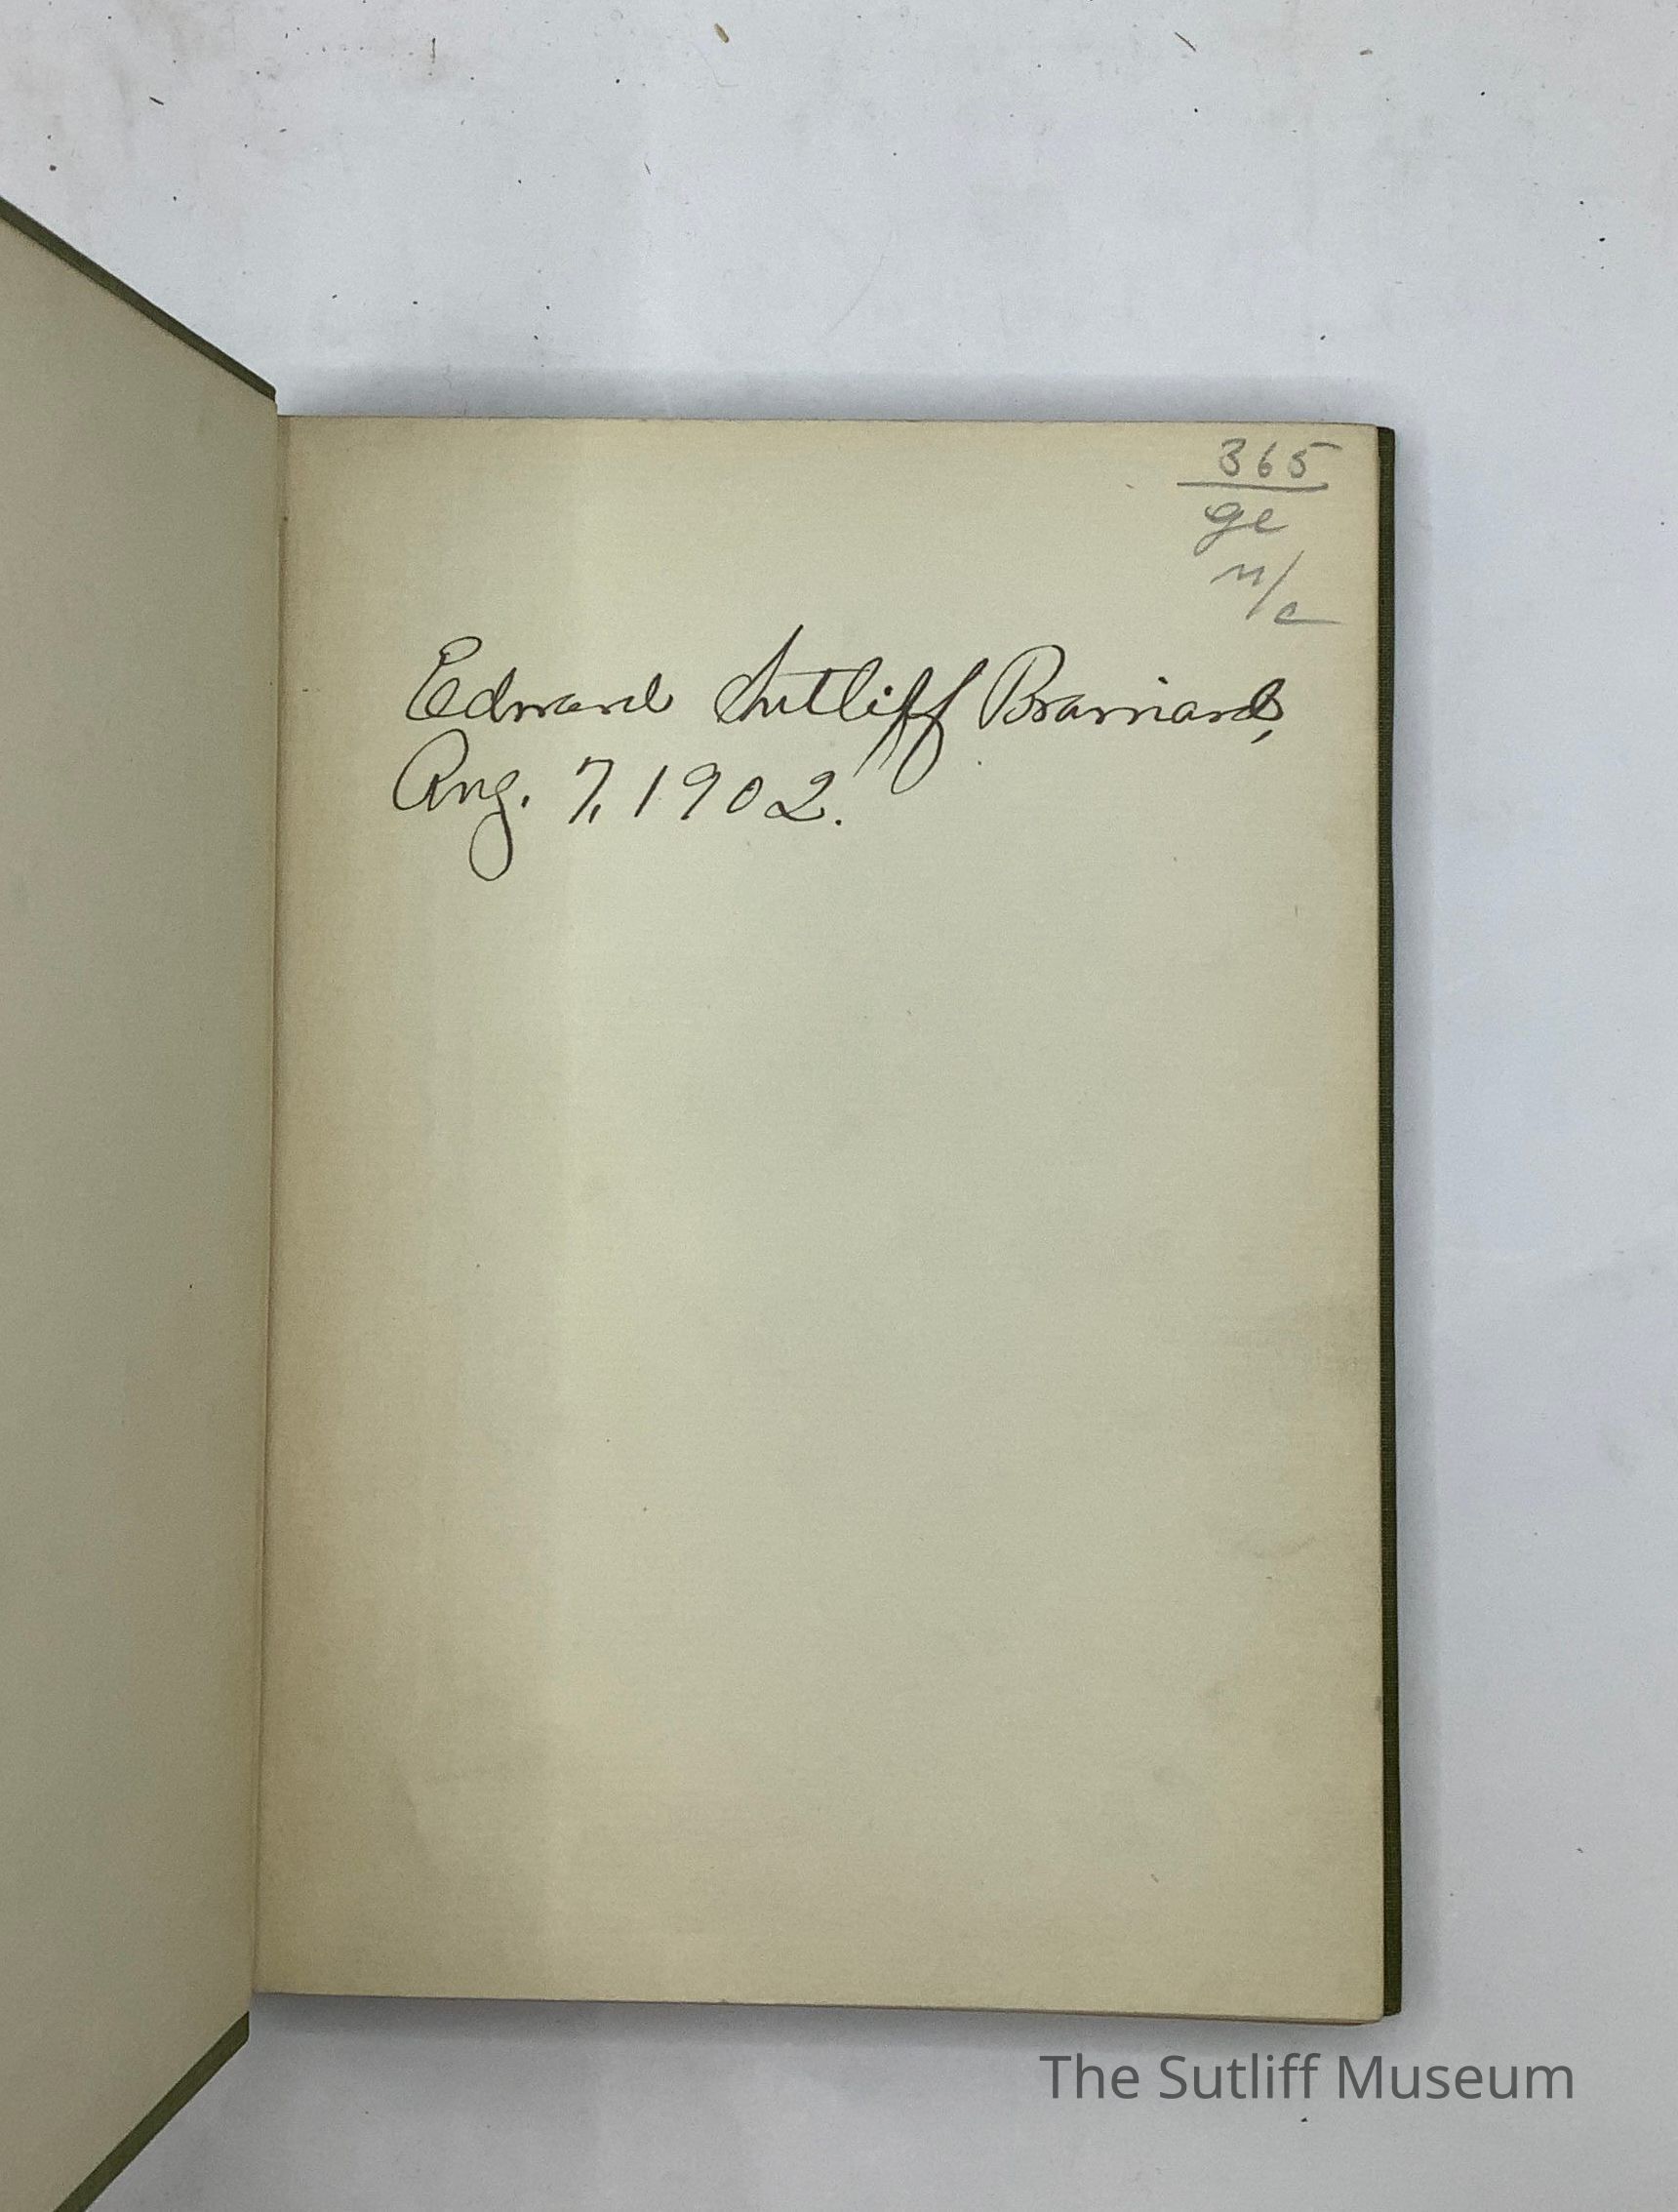 365
ge
n/c
Edward Sutliff Brainard,
Aug. 7, 1902.
The Sutliff Museum